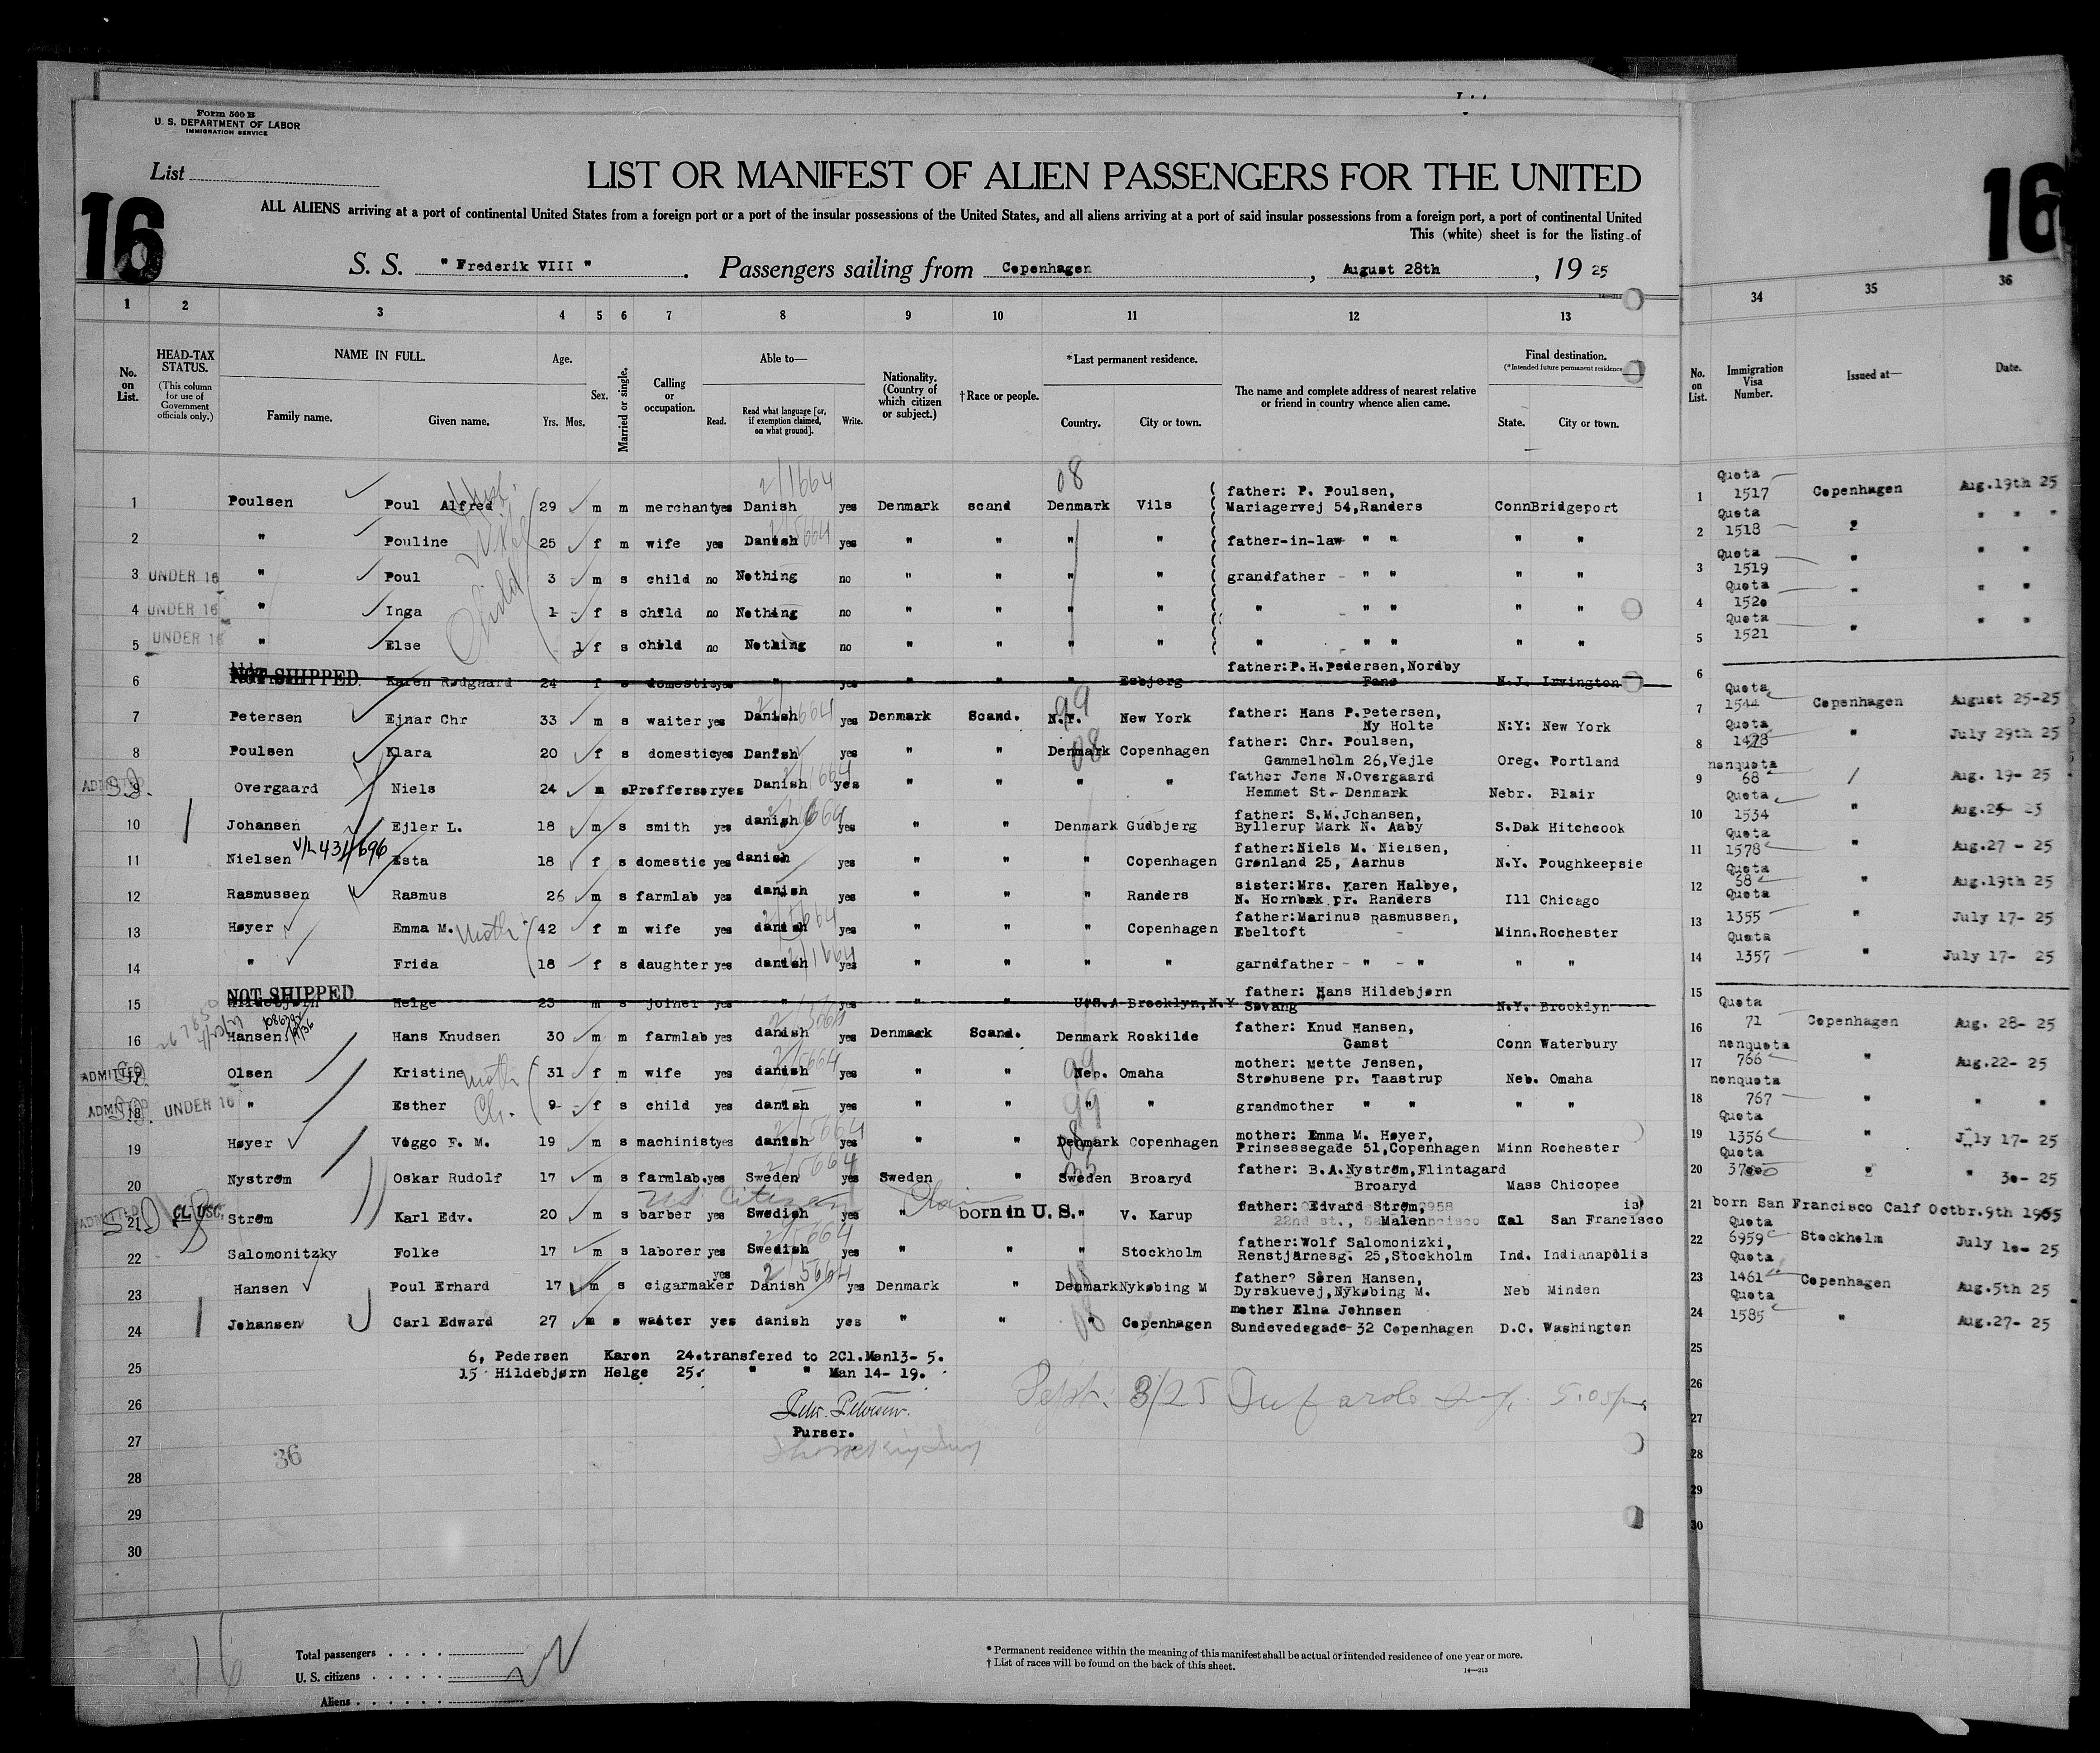 Form 500 B
U. S. DEPARTMENT OF LABOR
IMMIGRATION SERVICE
List
16
16
LIST OR MANIFEST OF ALIEN PASSENGERS FOR THE UNITED
ALL ALIENS arriving at a port of continental United States from a foreign port or a port of the insular possessions of the United States, and all aliens arriving at a port of said insular possessions from a foreign port, a port of continental United
This (white) sheet is for the listing of
S. S. " Frederik VIII " . Passengers sailing from Copenhagen , August 28th , 19 25
1 2 3 4 5 6 7 8 9 10 11 12 13 34 35 36
No. on List. HEAD-TAX STATUS. (This column for use of Government officials only.) NAME IN FULL. Family name. Given name. Age. Yrs. Mos. Sex. Married or single. Calling or occupation. Able to— Read. Read what language [or, if exemption claimed, on what ground]. Write. Nationality. (Country of which citizen or subject.) †Race or people. *Last permanent residence. Country. City or town. The name and complete address of nearest relative or friend in country whence alien came. Final destination. (*Intended future permanent residence State. City or town. No. on List. Immigration Visa Number. Issued at— Date.
1 Poulsen Poul Alfred 29 m m merchant yes Danish yes Denmark scand Denmark Vils father: P. Poulsen, Mariagervej 54,Randers Conn Bridgeport 1 Quota 1517 Copenhagen Aug.19th 25
2 " Pouline 25 f m wife yes Danish yes " " " " father-in-law " " " " 2 Quota 1518 " " " "
3 UNDER 16 " Poul 3 m s child no Nothing no " " " " grandfather - " " " " 3 Quota 1519 " " "
4 UNDER 16 " Inga 1 f s child no Nothing no " " " " " " " " " 4 Quota 1520 " " "
5 UNDER 16 " Else 1 f s child no Nothing no " " " " " " " " " 5 Quota 1521 " " "
6 NOT SHIPPED Karen Rødgaard 24 f s domestic yes " yes " " " Esbjerg father:P.H.Pedersen,Nordby Fanø N.J. Irvington 6
7 Petersen Ejnar Chr 33 m s waiter yes Danish yes Denmark Scand. N.Y. New York father: Hans P.Petersen, Ny Holte N:Y: New York 7 Quota 1544 Copenhagen August 25-25
8 Poulsen Klara 20 f s domestic yes Danish yes " " Denmark Copenhagen father: Chr. Poulsen, Gammelholm 26,Vejle Oreg. Portland 8 Quota " July 29th 25
ADMITTED 9 Overgaard Niels 24 m s Proffersor yes Danish yes " " " " father Jens N.Overgaard Hemmet St.- Denmark Nebr. Blair 9 nonquota 68 / Aug. 19- 25
10 Johansen Ejler L. 18 m s smith yes danish yes " " Denmark Gudbjerg father: S.M.Johansen, Byllerup Mark N. Aaby S.Dak Hitchcook 10 Quota 1534 " Aug.25- 25
11 Nielsen Esta 18 f s domestic yes danish yes " " " Copenhagen father:Niels M. Nielsen, Grønland 25, Aarhus N.Y. Poughkeepsie 11 Quota 1578 " Aug.27 - 25
12 Rasmussen Rasmus 26 m s farmlab yes danish yes " " " Randers sister:Mrs. Karen Halbye, N. Hornbæk pr. Randers Ill Chicago 12 Quota 68 " Aug.19th 25
13 Høyer Emma M. 42 f m wife yes danish yes " " " Copenhagen father:Marinus Rasmussen, Ebeltoft - Minn.Rochester 13 Quota 1355 " July 17- 25
14 " Frida 18 f s daughter yes danish yes " " " " garndfather - " - " " " 14 Quota 1357 " July 17- 25
15 NOT SHIPPED Hildebjørn Helge 25 m s joiner yes " yes " " U.S.A Brooklyn,N.Y father: Hans Hildebjørn Søvang N.Y. Brooklyn 15
16 Hansen Hans Knudsen 30 m m farmlab yes danish yes Denmark Scand. Denmark Roskilde father: Knud Hansen, Gamst Conn Waterbury 16 Quota 71 Copenhagen Aug. 28- 25
ADMITTED 17 Olsen Kristine 31 f m wife yes danish yes " " Neb. Omaha mother: Mette Jensen, Strøhusene pr. Taastrup Neb. Omaha 17 nonquota 766 " Aug.22- 25
ADMITTED 18 UNDER 16 " Esther 9 f s child yes danish yes " " " " grandmother " " " " 18 nonquota 767 " " "
19 Høyer Viggo F. M. 19 m s machinist yes danish yes " " Denmark Copenhagen mother: Emma M. Høyer, Prinsessegade 51,Copenhagen Minn Rochester 19 Quota 1356 " July 17- 25
20 Nystrøm Oskar Rudolf 17 m s farmlab. yes Sweden yes Sweden " Sweden Broaryd father: B.A.Nystrøm,Flintagard Broaryd Mass Chicopee 20 Quota " " 30- 25
ADMITTED 21 Cl USC. Strøm Karl Edv. 20 m s barber yes Swedish yes " born in U. S. " V. Karup father: Edvard Strøm, Malen Cal San Francisco 21 born San Francisco Calf Octbr.9th 1905
US Citizen
22 Salomonitzky Folke 17 m s laborer yes Swedish yes " " " Stockholm father:Wolf Salomonizki, Renstjärnesg. 25,Stockholm Ind. Indianapolis 22 Quota 6959 Stockholm July 10- 25
23 Hansen Poul Erhard 17 m s cigarmaker yes Danish yes Denmark " Denmark Nykøbing M father? Søren Hansen, Dyrskuevej,Nykøbing M. Neb Minden 23 Quota 1461 Copenhagen Aug.5th 25
24 Johansen Carl Edward 27 m s waiter yes danish yes " " " Copenhagen mother Elna Johnsen Sundevedsgade-32 Copenhagen D.C. Washington 24 Quota 1585 " Aug.27- 25
25 6, Pedersen Karen 24.transfered to 2Cl.Man13- 5. 25
15 Hildebjørn Helge 25. " " Man 14- 19.
26 26
Purser.
27 27
36
28 28
29 29
30 30
16
Total passengers
U. S. citizens
Aliens
* Permanent residence within the meaning of this manifest shall be actual or intended residence of one year or more.
† List of races will be found on the back of this sheet.
14—213